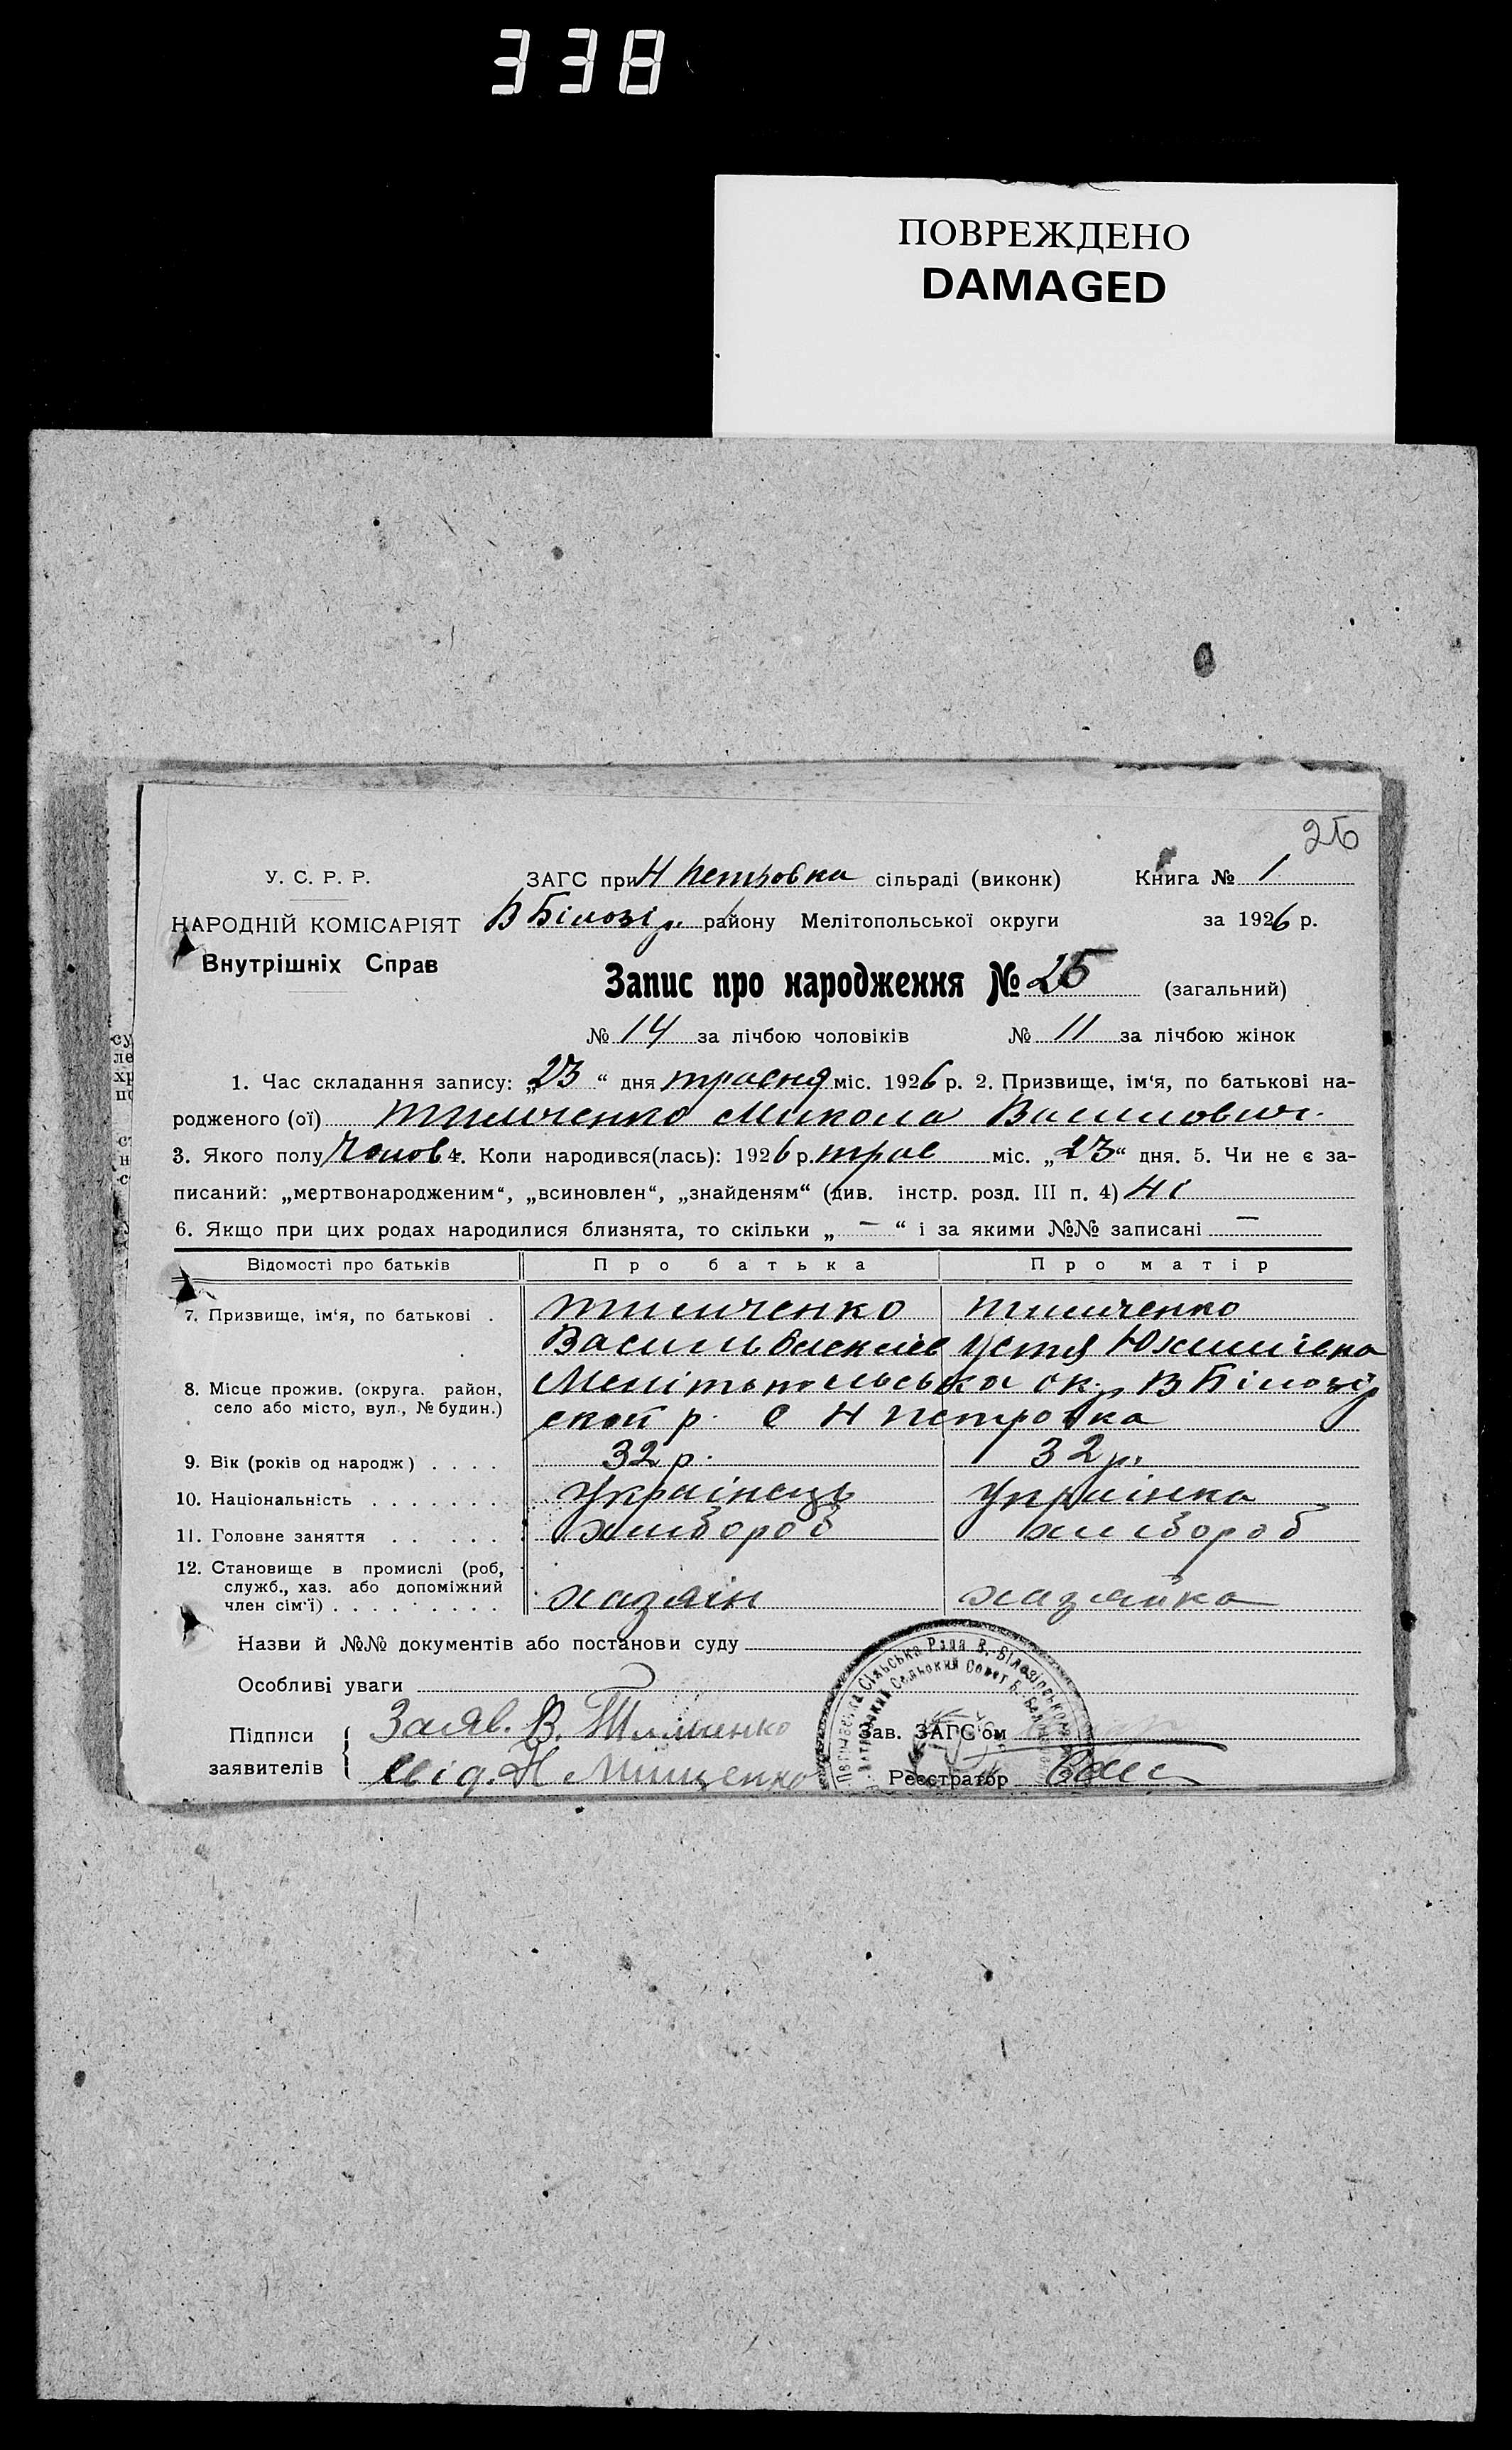 338
ПОВРЕЖДЕНО
DAMAGED
26
У. С. Р. Р.
ЗАГС при Н Петровка сільраді (виконк)
Книга № 1
НАРОДНІЙ КОМІСАРІЯТ
В Білозір. району Мелітопольської округи
за 1926 р.
Внутрішніх Справ
Запис про народження № 25 (загальний)
№ 14 за лічбою чоловіків № 11 за лічбою жінок
1. Час складання запису: „23“ дня травня міс. 1926 р. 2. Призвище, ім'я, по батькові на-
родженого (ої) Тимченко Микола Василович
3. Якого полу Чолов 4. Коли народився(лась): 1926 р. трав міс. „23“ дня. 5. Чи не є за-
писаний: „мертвонародженим“, „всиновлен“, „знайденям“ (див. інстр. розд. III п. 4) Ні
6. Якщо при цих родах народилися близнята, то скільки „ — “ і за якими №№ записані —
Відомості про батьків
Про батька
Про матір
7. Призвище, ім'я, по батькові .
Тимченко
Тимченко
Василь
Устя Юхимівна
8. Місце прожив. (округа, район,
село або місто, вул., № будин.)
Мелітопольська ок. В Білозір
ской р. с Н Петровка
9. Вік (років од народж) . . . .
32 р.
32 р.
10. Національність . . . . . . .
Українець
Українка
11. Головне заняття . . . . . .
хлибороб
хлибороб
12. Становище в промислі (роб,
служб., хаз. або допоміжний
член сім'ї) . . . . . . . . .
хазяін
хазяйка
Назви й №№ документів або постанови суду
Особливі уваги
Підписи
заявителів
Заяв. В. Тимченко
Свід. Н Мищенко
Зав. ЗАГС'ом
Реєстратор
Сільська Рада В. Білозірськ
Сельский Совет Б.